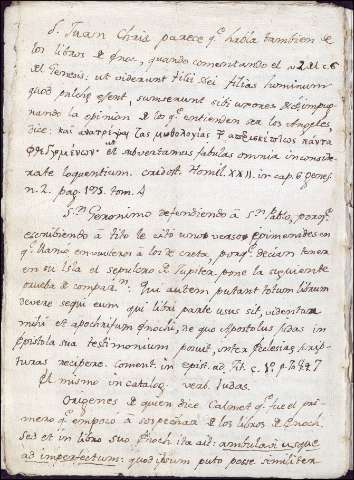 S. Juan Chris. parece q.e habla tambien de
los libros de Enoc, quando comentando el v. 2 del c. 6
del Genesis: ut viderunt filii Dei filias hominum
quod pulchre essent, sumserunt sibi uxores, &c. impug
nando la opinion de los q.e entienden ser los Angeles,
dice: και ανατρεψαι τας μυθολογιας των
ut subvertamus fabulas omnia inconside
rate loquentium. Homil. XXII. in cap. 6 genes.
n. 2. pag. 195. tom. 4
S.n Geronimo defendiendo á S.n Pablo, porq.e
escribiendo á Tito le citó unos versos Epimenades en
q.e llamó embusteros á los de Creta, porq.e decian tener
en su Isla el sepulcro de Jupiter, pone la siguiente
prueba de compar.n: Qui autem putant totum librum
devere sequi eum qui libri parte usus sit, videntur
mihi et apochrifum Enochi, de quo Apostolus Judas in
Epistola sua testimonium posuit, inter Ecclesiae scrip
turas recipere. Coment. in epist. ad Tit. c. 1.
El mismo in catalog. verb. Judas.
Origenes de quien dice Calmet q.e fue el pri
mero q.e empezó á sospechar de los libros de Enoch,
sed et in libro suo Enoch ita ait: ambulavi usque
ad imperfectum: quod ipsum puto posse similiter